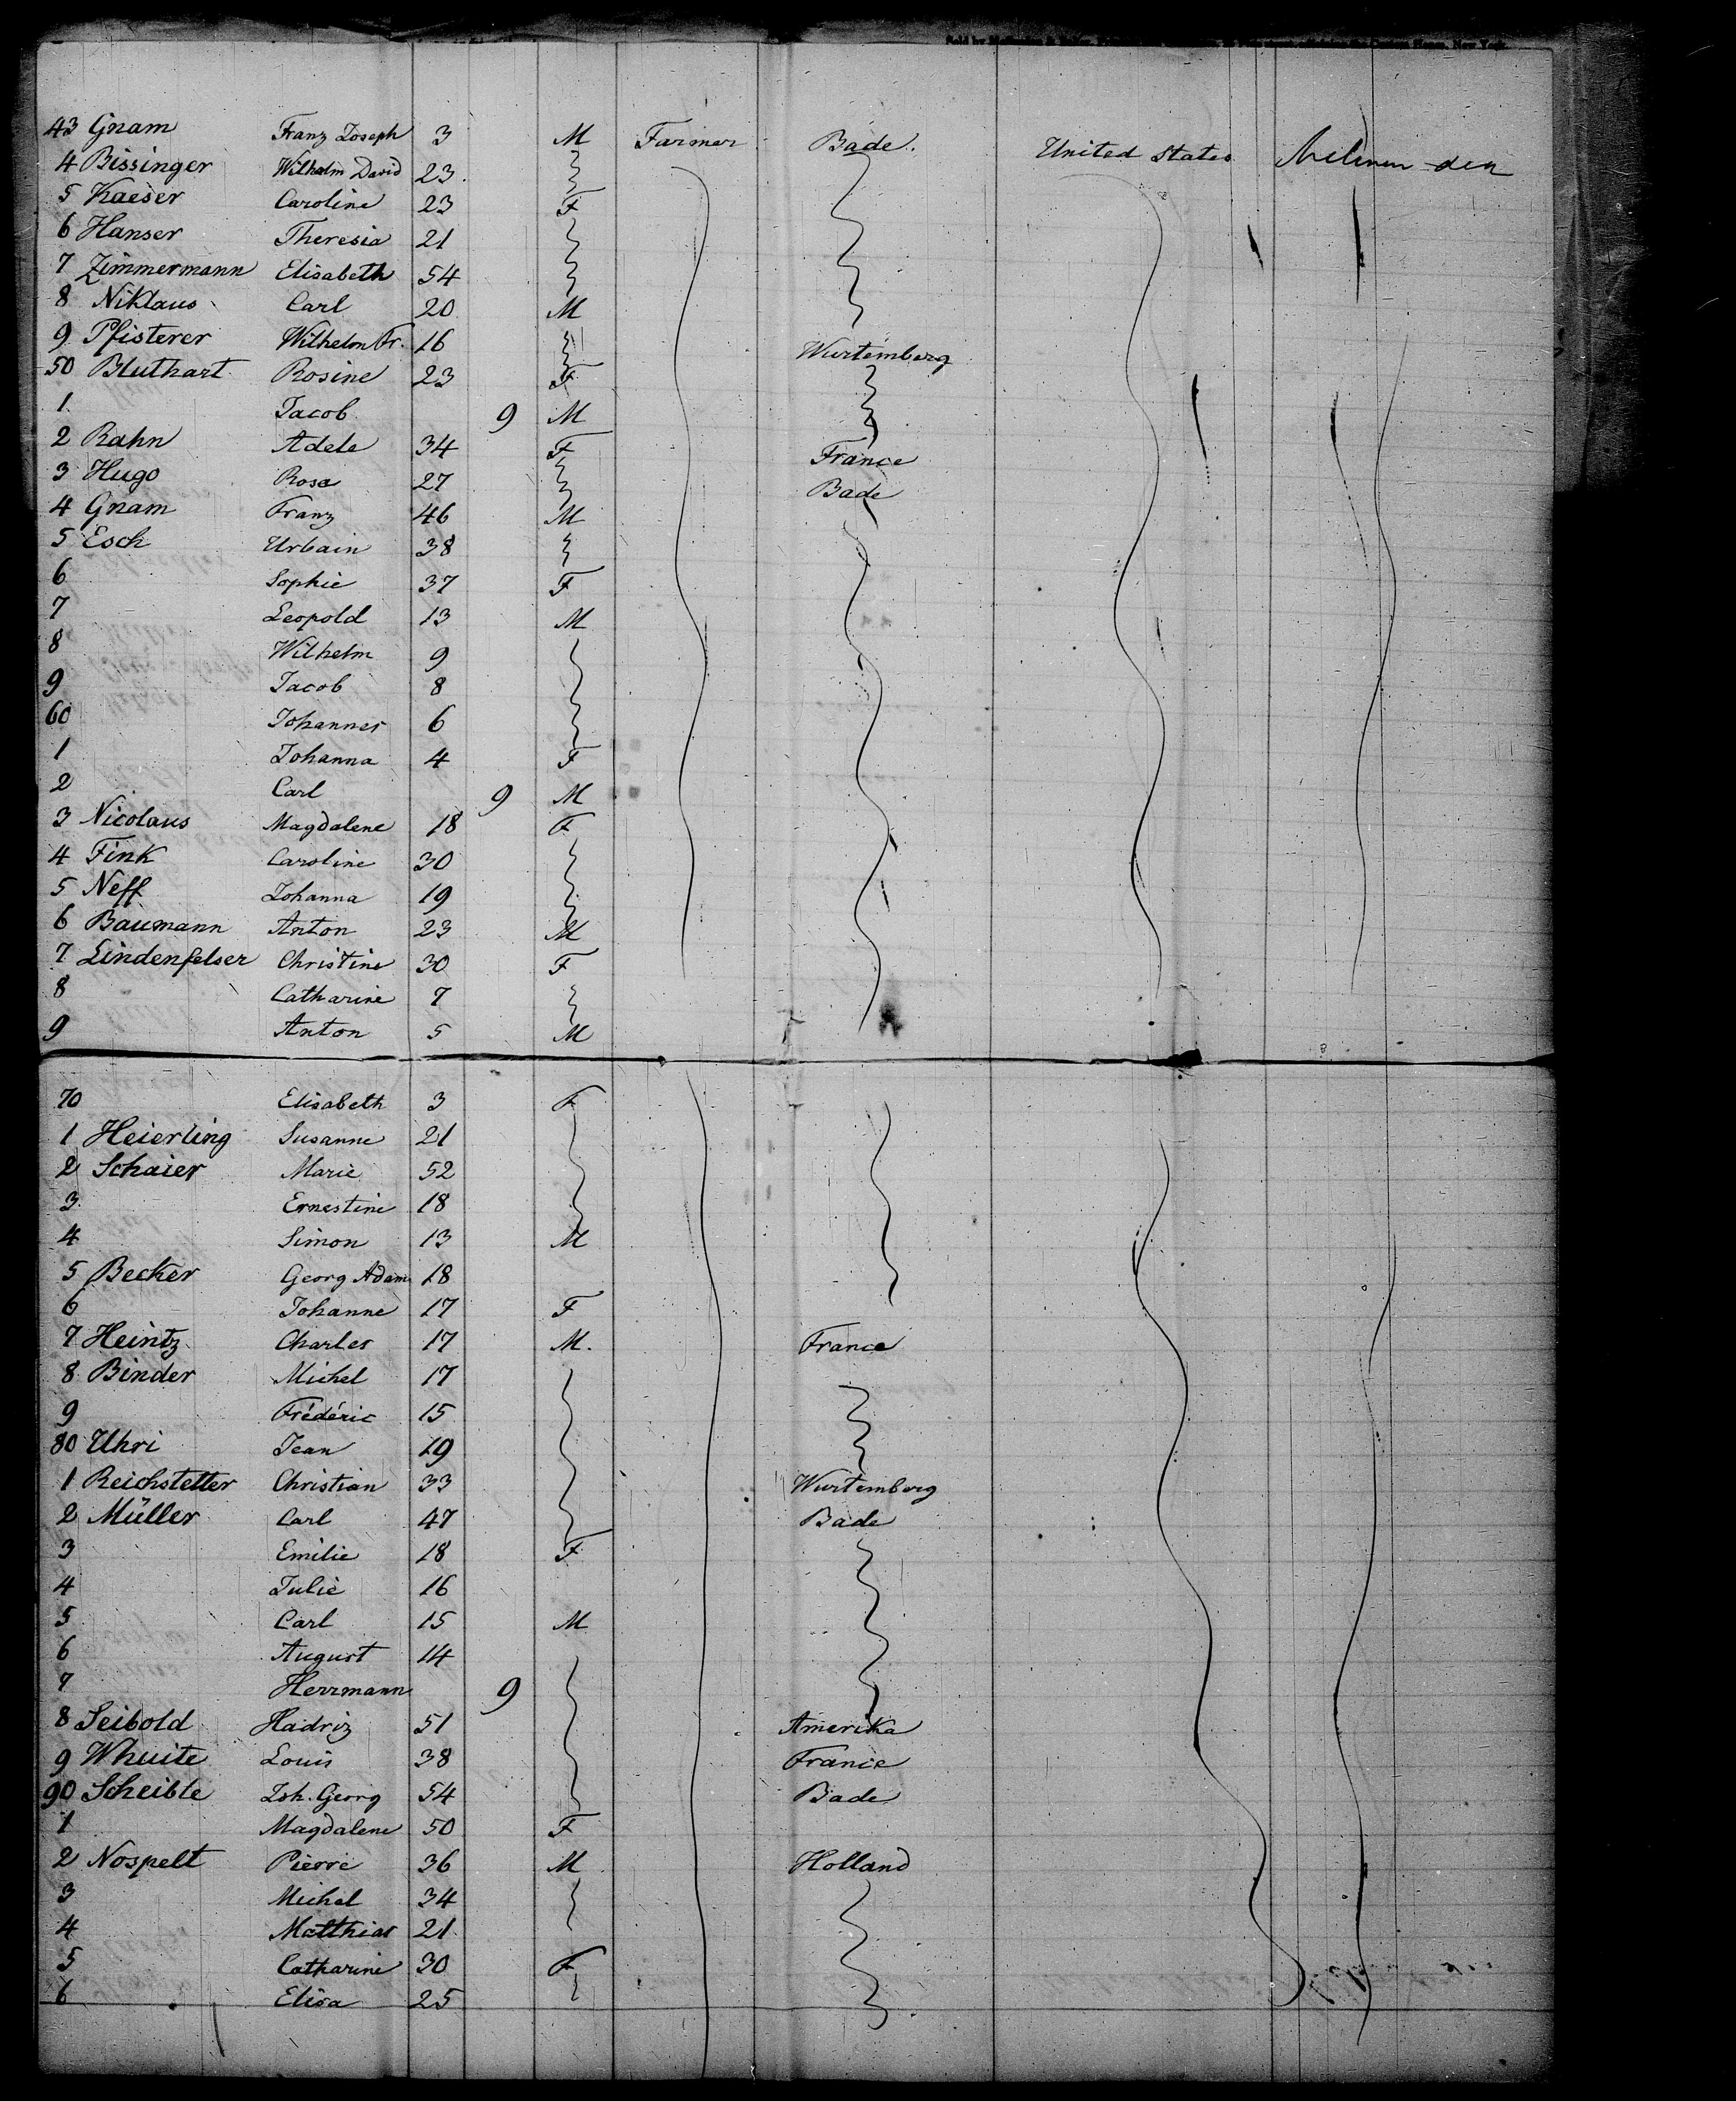 43 Gnam Franz Joseph 3 M Farmer Bade. United States
4 Bissinger Wilhelm David 23
5 Kaeser Caroline 23 F
6 Hanser Theresia 21
7 Zimmermann Elisabeth 54
8 Niklaus Carl 20 M
9 Pfisterer Wilhelm Fr. 16 Wurtemberg
50 Bluthart Rosine 23 F
1 Jacob 9 M
2 Rahn Adele 34 F France
3 Hugo Rosa 27 Bade
4 Gnam Franz 46 M
5 Esch Urbain 38
6 Sophie 37 F
7 Leopold 13 M
8 Wilhelm 9
9 Jacob 8
60 Johannes 6
1 Johanna 4 F
2 Carl 9 M
3 Nicolaus Magdalene 18 F
4 Fink Caroline 30
5 Neff Johanna 19
6 Baumann Anton 23 M
7 Lindenfelser Christine 30 F
8 Catharine 7
9 Anton 5 M
70 Elisabeth 3 F
1 Heierling Susanne 21
2 Schaier Marie 52
3 Ernestine 18
4 Simon 13 M
5 Becker Georg Adam 18
6 Johanne 17 F
7 Heintz Charles 17 M. France
8 Binder Michel 17
9 Frédéric 15
80 Uhri Jean 19
1 Reichstetter Christian 33 Wurtemberg
2 Müller Carl 47 Bade
3 Emilie 18 F
4 Julie 16
5 Carl 15 M
6 August 14
7 Herrmann 9
8 Seibold Hadriz 51 Amerika
9 Whuite Louis 38 France
90 Scheible Joh. Georg 54 Bade
1 Magdalene 50 F
2 Nospelt Pierre 36 M Holland
3 Michel 34
4 Matthias 21
5 Catharine 30 F
6 Elisa 25